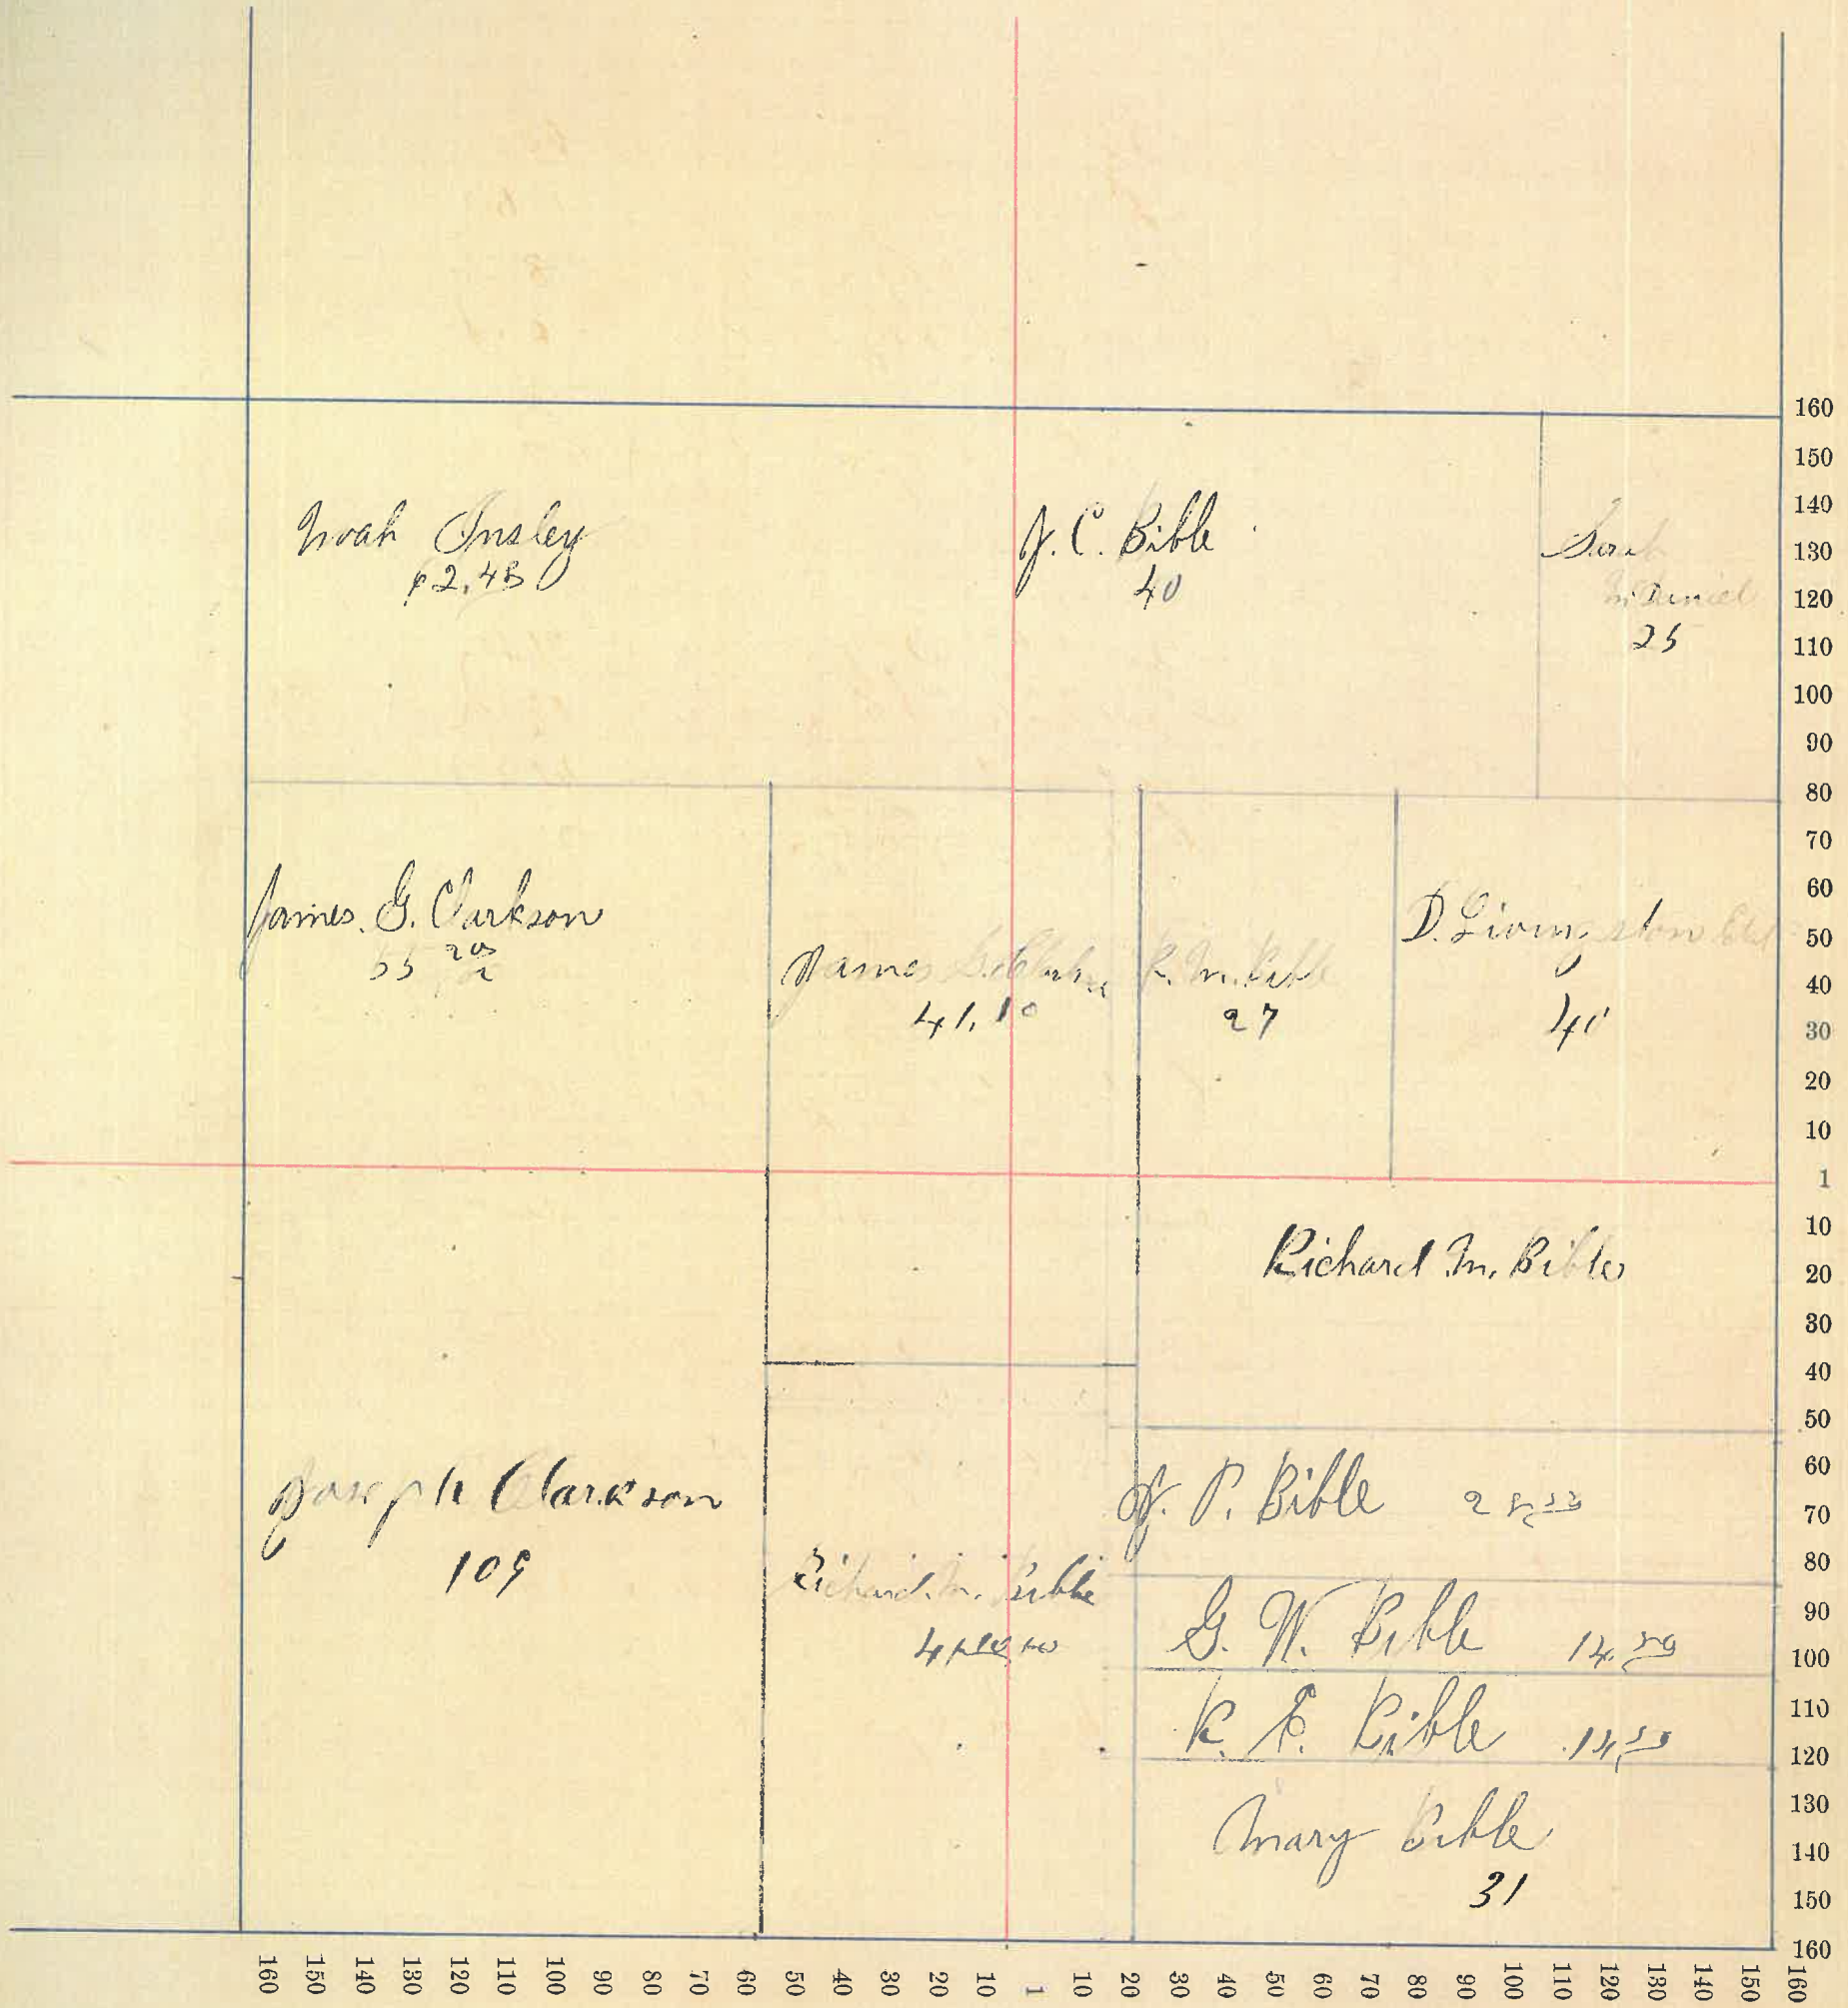 Noah Insley
J. C. Bible
40
Sarah
McDaniel
25
James. G. Clarkson
55
James G. Clarkson
41.10
R. M. Bible
27
D. Livingston
40
Richard M. Bible
Joseph Clarkson
109
Richard. M. Bible
J. P. Bible
G. W. Bible 14.50
R. E. Bible 14.50
Mary Bible
31
160
150
140
130
120
110
100
90
80
70
60
50
40
30
20
10
1
10
20
30
40
50
60
70
80
90
100
110
120
130
140
150
160
160 150 140 130 120 110 100 90 80 70 60 50 40 30 20 10 1 10 20 30 40 50 60 70 80 90 100 110 120 130 140 150 160